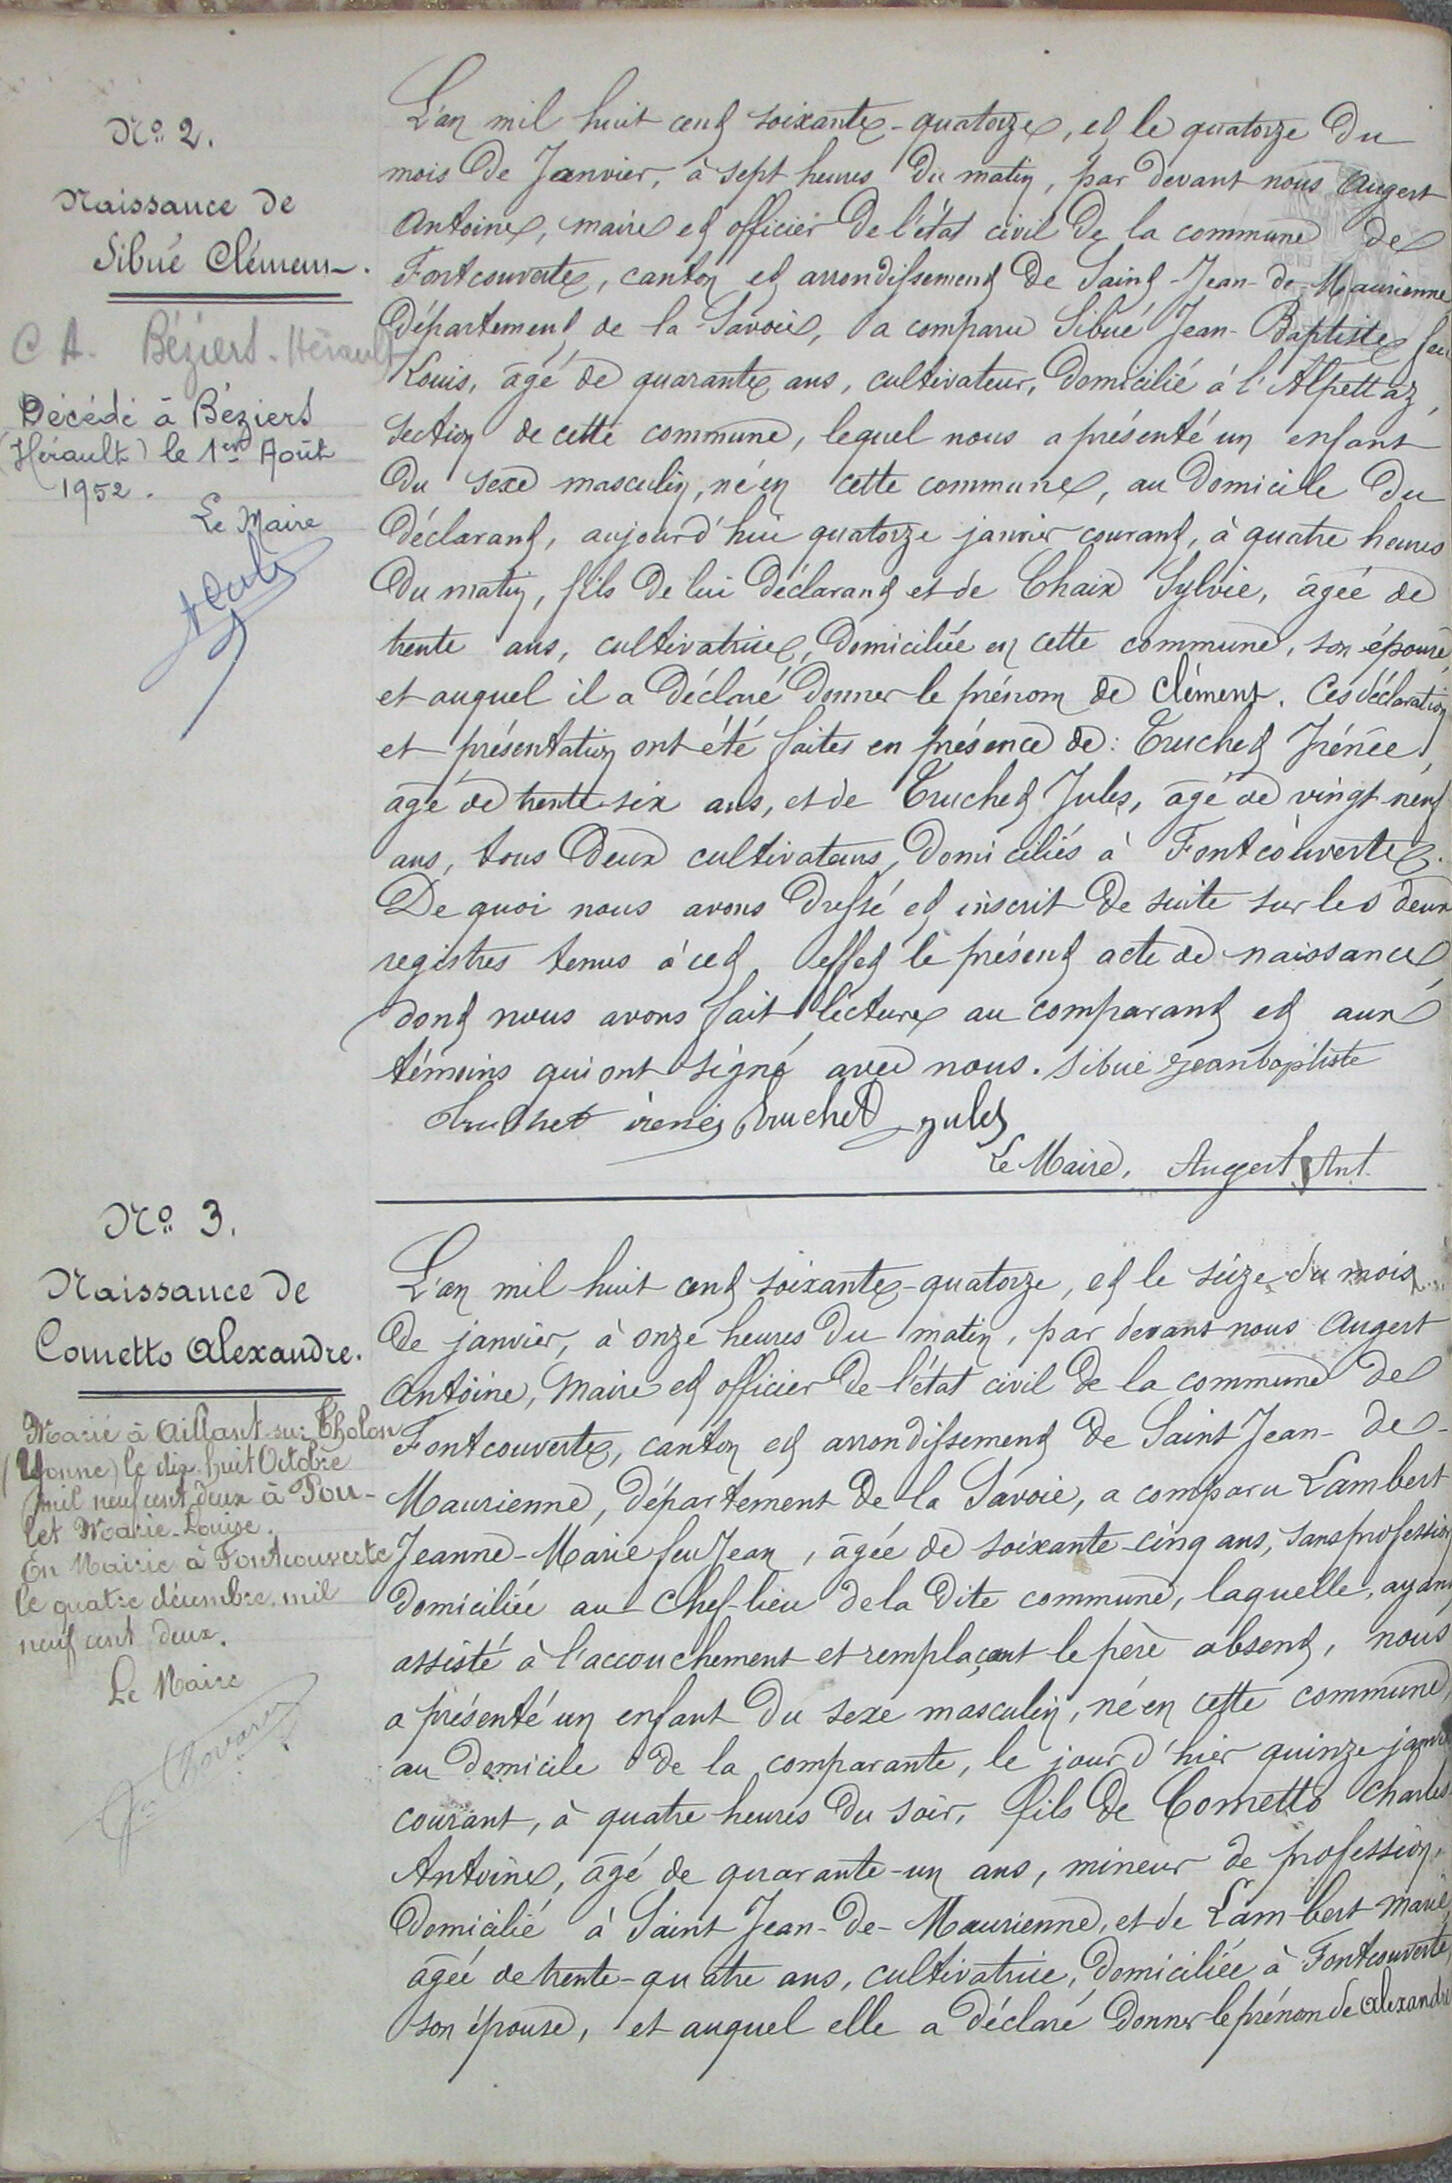 N.º 2.
Naissance de
Sibué Clément.
C A. Béziers-Hérault
Décédé à Béziers
(Hérault) le 1er Août
1952.
Le Maire
L'an mil huit cent soixante-quatorze, et le quatorze du
mois de Janvier, à sept heures du matin, par devant nous Augert
Antoine, maire et officier de l'état civil de la commune de
Fontcouverte, canton et arrondissement de Saint-Jean-de-Maurienne
département de la Savoie, a comparu Sibué Jean-Baptiste feu
Louis, âgé de quarante ans, cultivateur, domicilié à l'Alpettaz,
section de cette commune, lequel nous a présenté un enfant
du sexe masculin, né en cette commune, au domicile du
déclarant, aujourd'hui quatorze janvier courant, à quatre heures
du matin, fils de lui déclarant et de Chaix Sylvie, âgée de
trente ans, cultivatrice, domiciliée en cette commune, son épouse
et auquel il a déclaré donner le prénom de Clément. Ces déclaration
et présentation ont été faites en présence de : Truchet Irénée,
âgé de trente-six ans, et de Truchet Jules, âgé de vingt-neuf
ans, tous deux cultivateurs, domiciliés à Fontcouverte.
De quoi nous avons dressé et inscrit de suite sur les deux
registres tenus à cet effet le présent acte de naissance,
dont nous avons fait lecture au comparant et aux
témoins qui ont signé avec nous. Sibué jeanbaptiste
truchet irenée truchet jules
Le Maire, Augert Ant.
N.º 3.
Naissance de
Cometto Alexandre.
Marié à Aillant-sur-Tholon
(Yonne) le dix-huit Octobre
mil neuf cent deux à Pou-
let Marie-Louise.
En Mairie à Fontcouverte
le quatre décembre mil
neuf cent deux.
Le Maire
L'an mil huit cent soixante-quatorze, et le seize du mois
de janvier, à onze heures du matin, par devant nous Augert
Antoine, Maire et officier de l'état civil de la commune de
Fontcouverte, canton et arrondissement de Saint Jean-de-
Maurienne, département de la Savoie, a comparu Lambert
Jeanne-Marie feu Jean, âgée de soixante-cinq ans, sans profession
domiciliée au Chef-lieu de la dite commune, laquelle, ayant
assisté à l'accouchement et remplaçant le père absent, nous
a présenté un enfant du sexe masculin, né en cette commune,
au domicile de la comparante, le jour d'hier quinze janvier
courant, à quatre heures du soir, fils de Cometto Charles
Antoine, âgé de quarante-un ans, mineur de profession,
domicilié à Saint Jean-de-Maurienne, et de Lambert Marie,
âgée de trente-quatre ans, cultivatrice, domiciliée à Fontcouverte,
son épouse, et auquel elle a déclaré donner le prénom de Alexandre